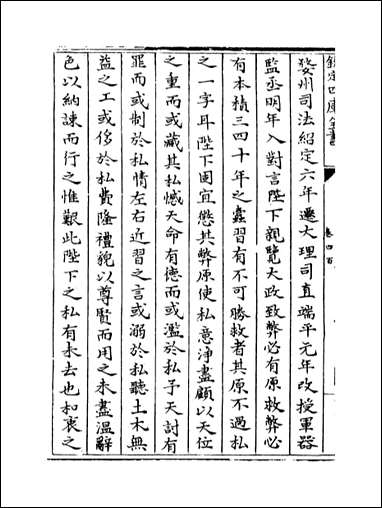 欽定四庫全書
卷四百
婺州司法紹定六年遷大理司直端平元年改授軍器
監丞明年入對言陛下親覽大政致弊必有原救弊必
有本積三四十年之蠹習有不可勝救者其原不過私
之一字耳陛下固宜懲其弊原使私意淨盡顧以天位
之重而或藏其私憾天命有德而或濫於私予天討有
罪而或制於私情左右近習之言或溺於私聽土木無
益之工或侈於私費隆禮貌以尊賢而用之未盡温辭
色以納諫而行之惟艱此陛下之私有未去也和衷之